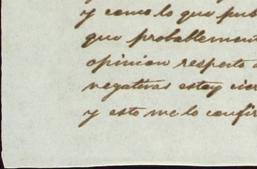 y como lo que pub
que probablement
opinion respecto a
negativas estoy cier
y esto me lo confir